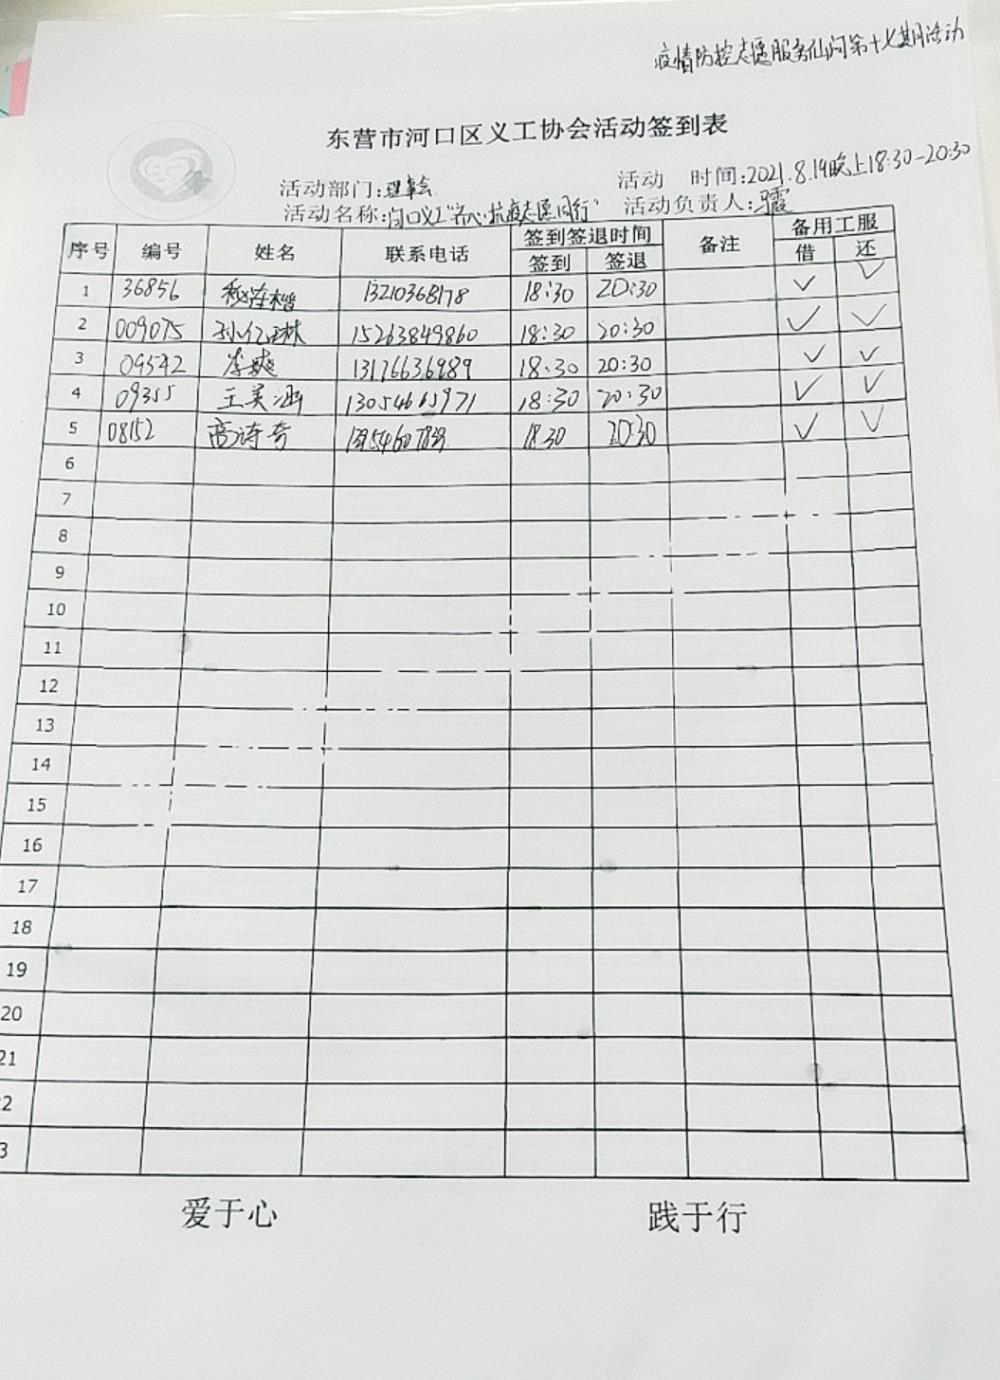 疫情防控志愿服务仙河第十七期活动
东营市河口区义工协会活动签到表
活动部门:理事会 活动 时间:2021.8.19晚上18:30-20:30
活动名称:河口义工"齐心抗疫志愿同行" 活动负责人:马霞
序号 编号 姓名 联系电话 签到签退时间 备注 备用工服
签到 签退 借 还
1 36856 13210368178 18:30 20:30 ✓ ✓
2 009075 孙亿琳 15263849860 18:30 20:30 ✓ ✓
3 09542 李爽 13176636989 18:30 20:30 ✓ ✓
4 09355 王英涵 13054665971 18:30 20:30 ✓ ✓
5 08152 高诗奇 18:30 20:30 ✓ ✓
6
7
8
9
10
11
12
13
14
15
16
17
18
19
20
21
2
3
爱于心 践于行